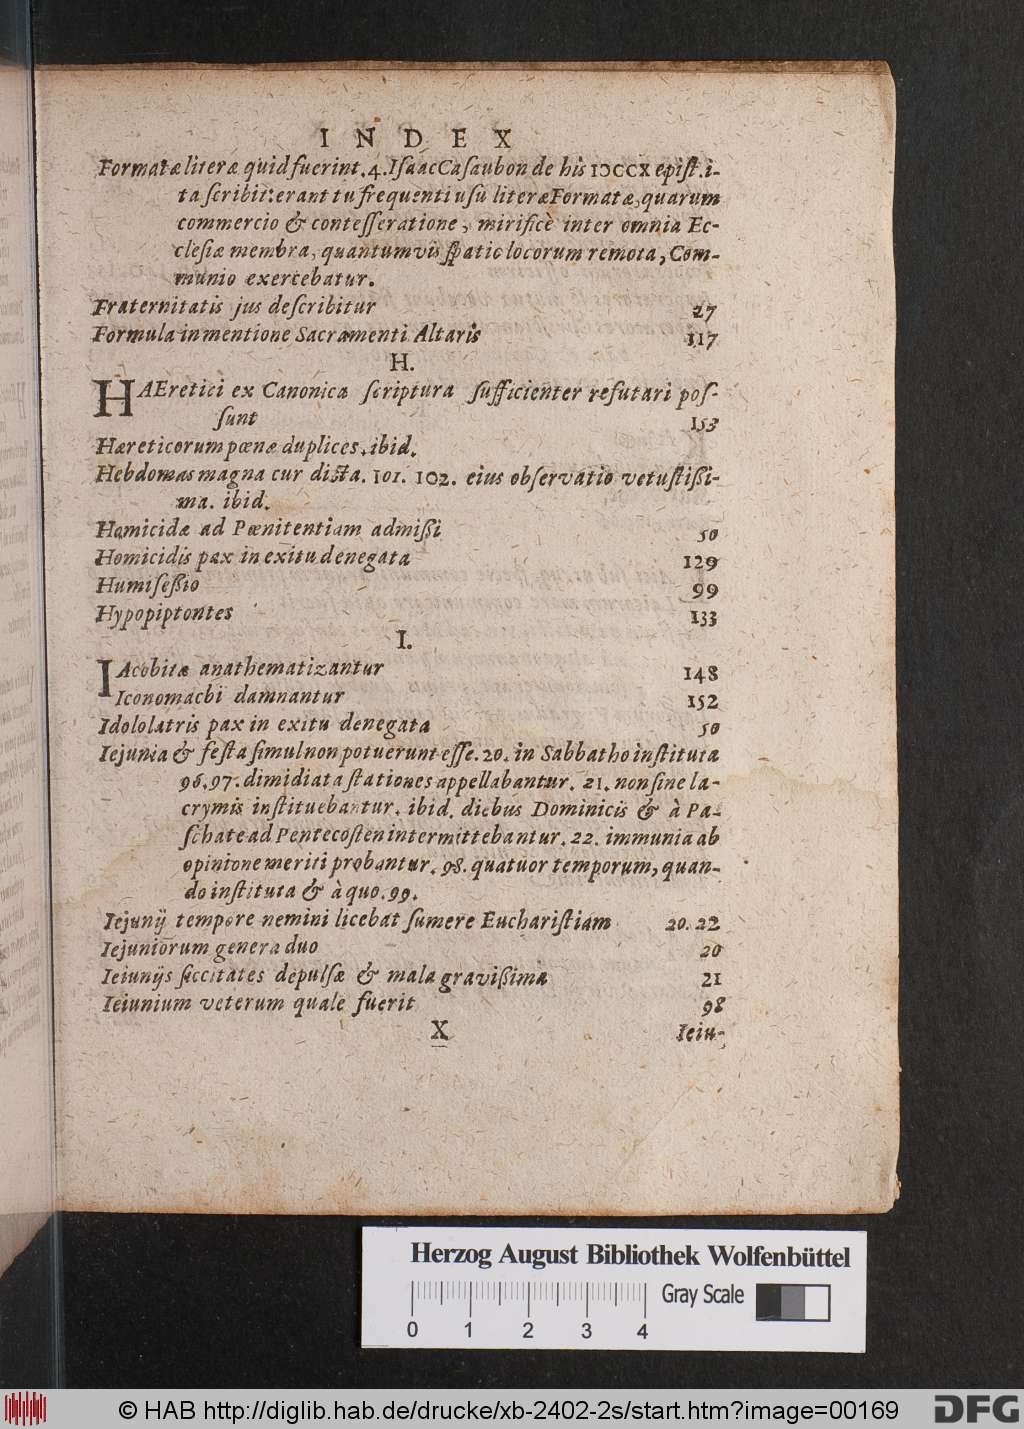 INDEX
Formatæ literæ quid fuerint. 4. Isaac Casaubon de his IↃCCX epist. i-
ta scribit: erant tu frequenti usu literæ Formatæ, quarum
commercio & contesseratione, mirificè inter omnia Ec-
clesiæ membra, quantumvis spatio locorum remota, Com-
munio exercebatur.
Fraternitatis jus describitur 27
Formula in mentione Sacramenti Altaris 117
H.
HAEretici ex Canonica scriptura sufficienter refutari pos-
sunt 153
Hæreticorum pœnæ duplices. ibid.
Hebdomas magna cur dicta. 101. 102. eius observatio vetustißi-
ma. ibid.
Homicidæ ad Pœnitentiam admißi 50
Homicidis pax in exitu denegata 129
Humiseßio 99
Hypopiptontes 133
I.
IAcobitæ anathematizantur 148
Iconomachi damnantur 152
Idololatris pax in exitu denegata 50
Iejunia & festa simul non potuerunt esse. 20. in Sabbatho instituta
96. 97. dimidiata stationes appellabantur. 21. non sine la-
crymis instituebantur. ibid. diebus Dominicis & à Pa-
schate ad Pentecosten intermittebantur. 22. immunia ab
opinione meriti probantur. 98. quatuor temporum, quan-
do instituta & à quo. 99.
Iejunij tempore nemini licebat sumere Eucharistiam 20. 22
Iejuniorum genera duo 20
Ieiunijs siccitates depulsæ & mala gravißima 21
Ieiunium veterum quale fuerit 98
X Ieiu-
Herzog August Bibliothek Wolfenbüttel
Gray Scale
0 1 2 3 4
© HAB http://diglib.hab.de/drucke/xb-2402-2s/start.htm?image=00169
DFG